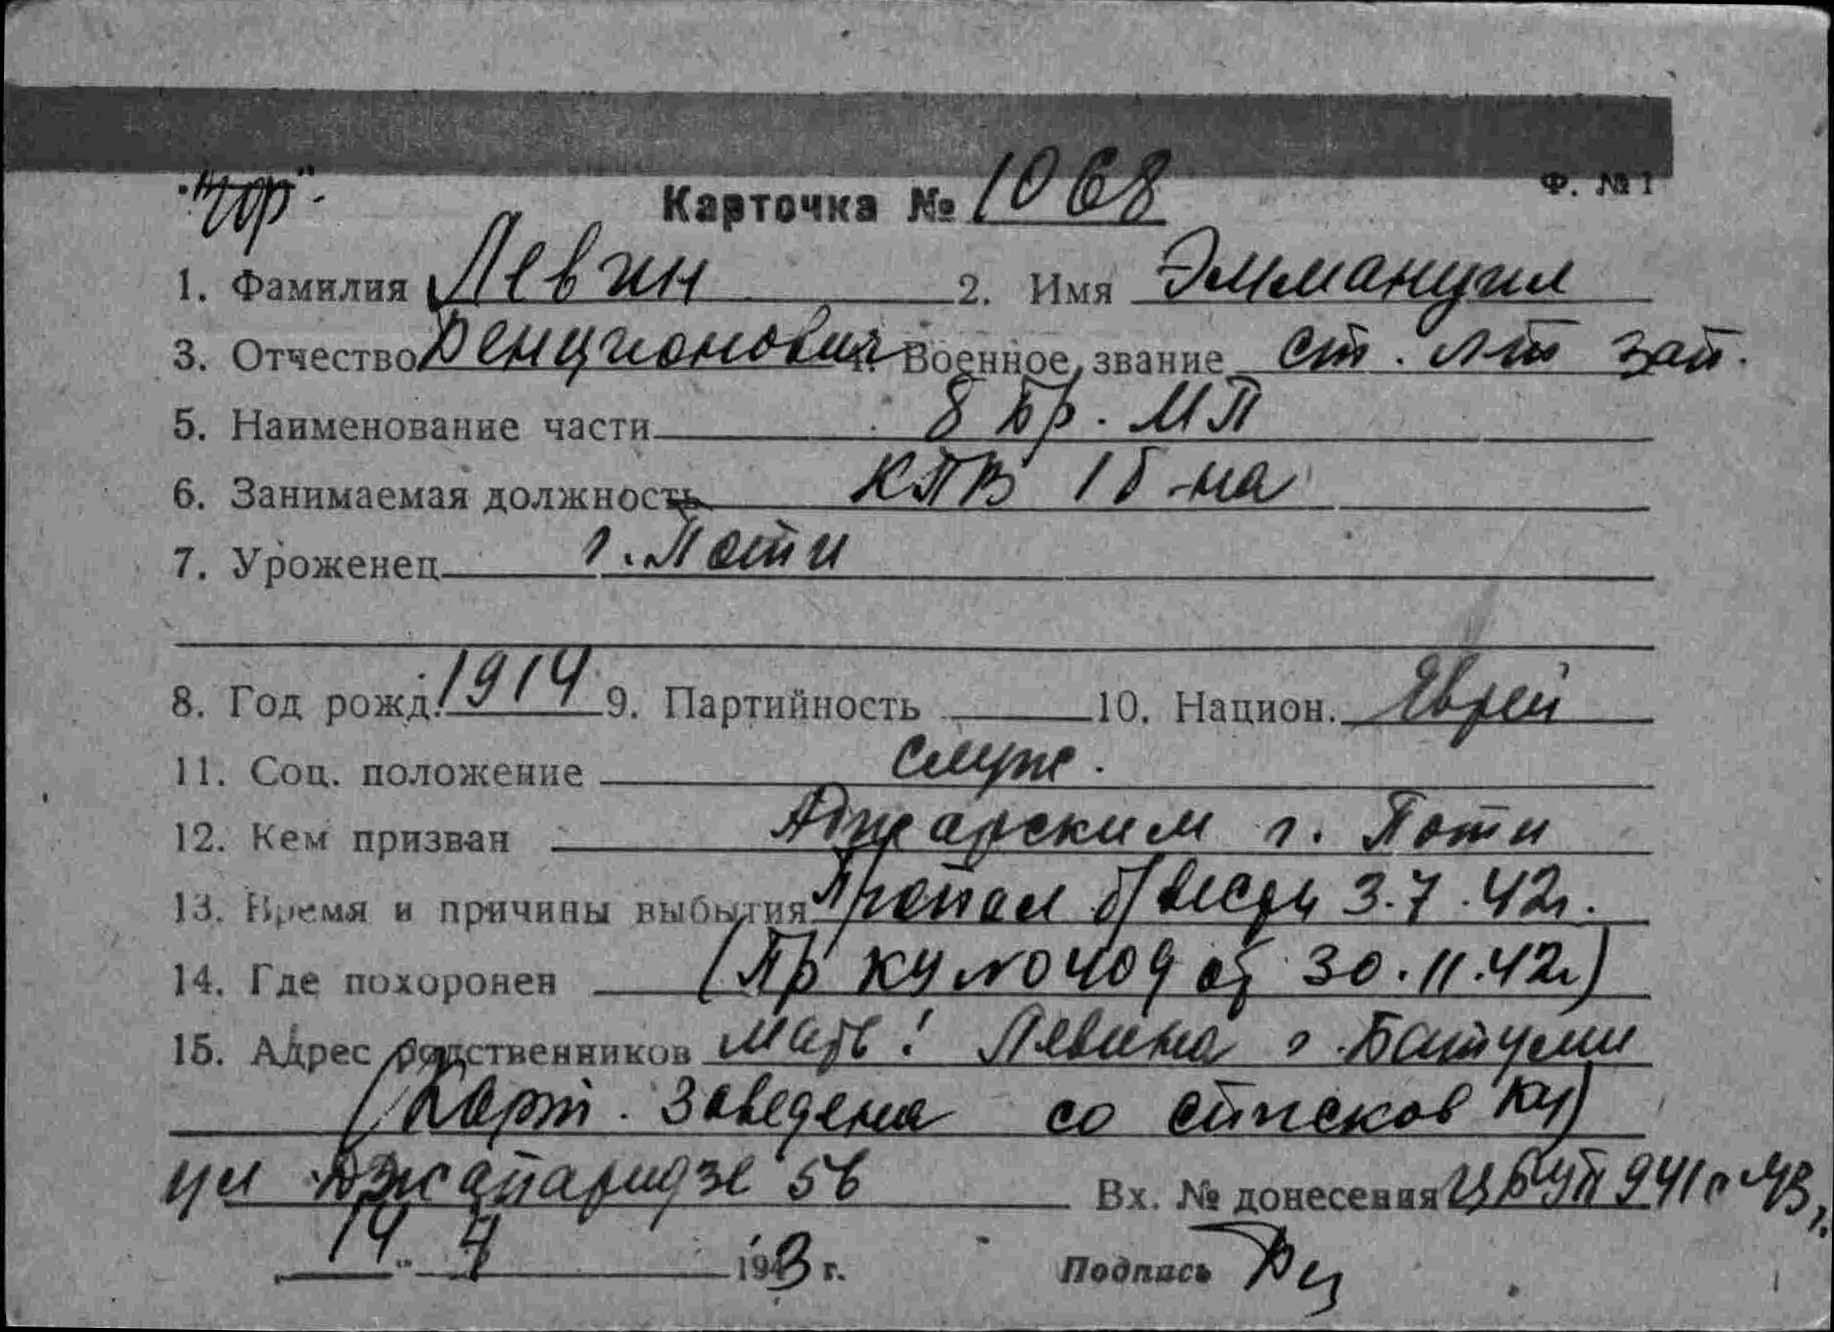 "Чф"
Ф. № 1
Карточка № 1068
1. Фамилия Левин 2. Имя Эммануил
3. Отчество Бенционович 4. Военное звание ст. л-т зап.
5. Наименование части 8 бр. МП
6. Занимаемая должность КПВ 1 б-на
7. Уроженец г. Поти
8. Год рожд. 1914 9. Партийность 10. Национ. Еврей
11. Соц. положение служ.
12. Кем призван Аджарским г. Поти
13. Время и причины выбытия Пропал б/вести 3.7.42г.
14. Где похоронен (Пр КУ № 0409 от 30.11.42г)
15. Адрес родственников мать: Левина г. Батуми
(Карт. заведена со списков КУ)
ул Джапаридзе 56 Вх. № донесения 941с 43г.
14 " 4 1943 г. Подпись